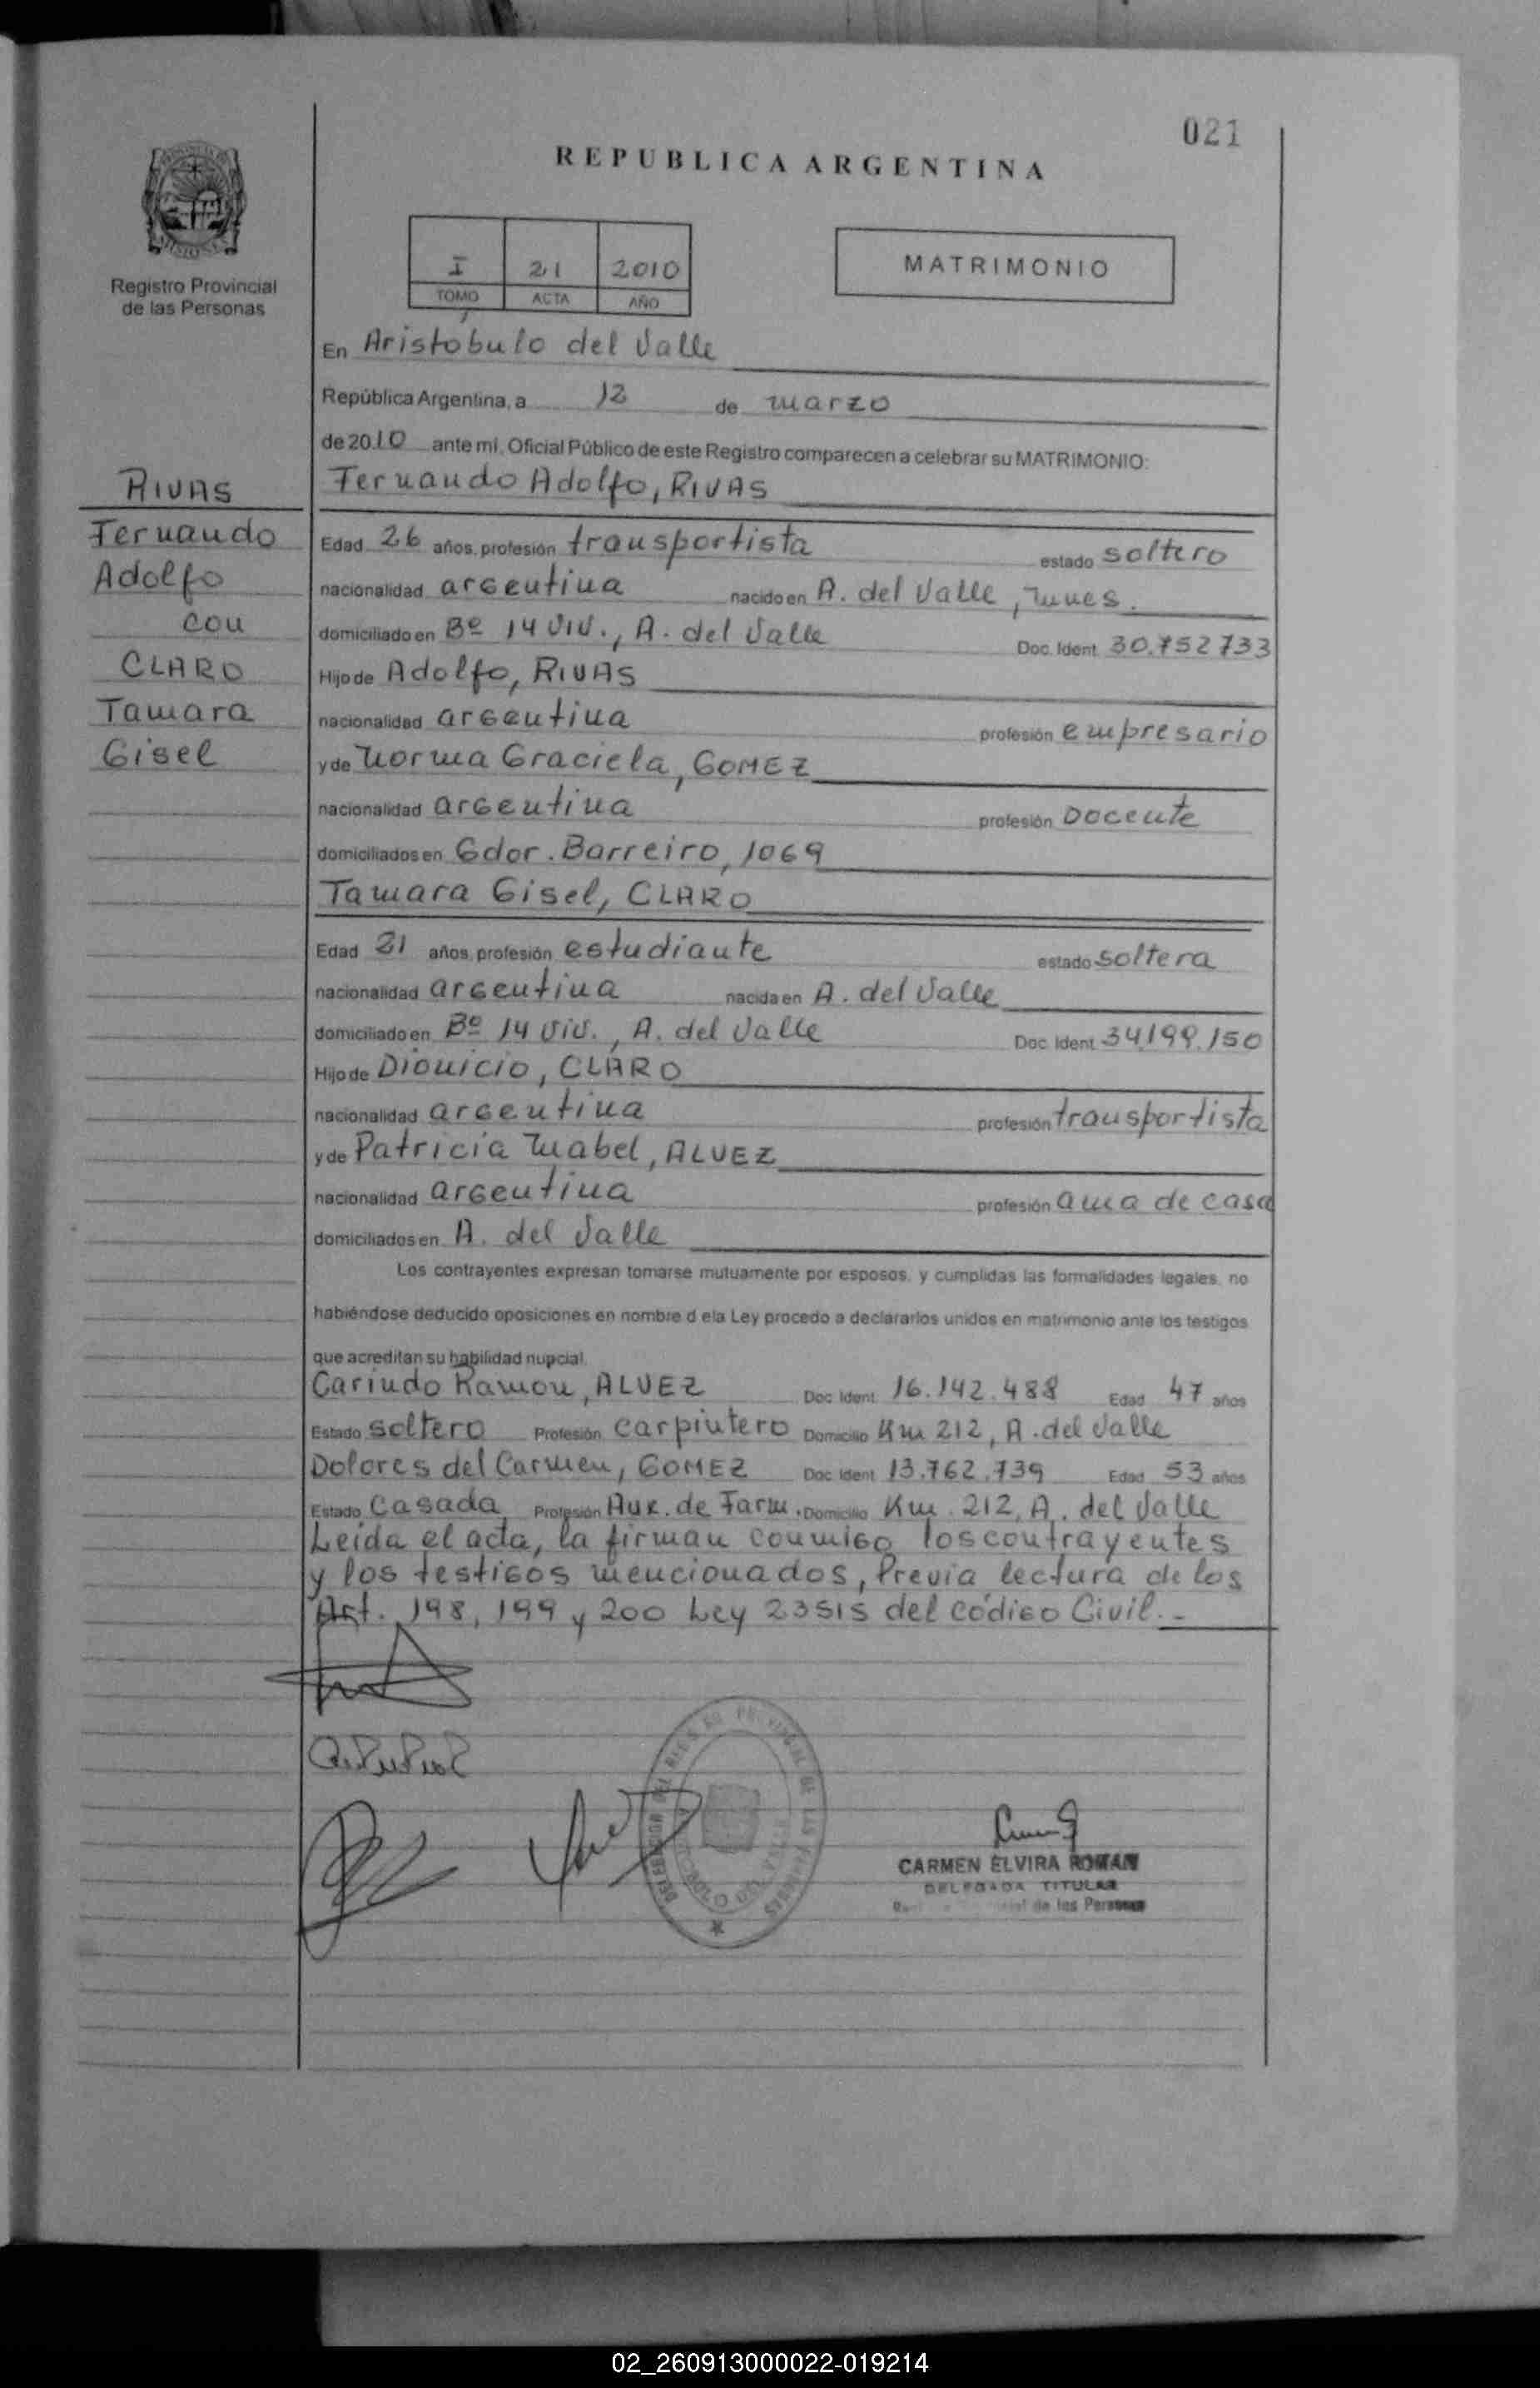 021
REPUBLICA ARGENTINA
MISIONES
Registro Provincial
de las Personas
I 21 2010
TOMO ACTA AÑO
MATRIMONIO
En Aristobulo del Valle
República Argentina, a 12 de marzo
de 2010 ante mi, Oficial Público de este Registro comparecen a celebrar su MATRIMONIO:
RIVAS
Fernando
Adolfo
con
CLARO
Tamara
Gisel
Fernando Adolfo, RIVAS
Edad 26 años, profesión transportista estado soltero
nacionalidad argentina nacido en A. del Valle, Mnes.
domiciliado en Bº 14 Viv., A. del Valle Doc. Ident. 30.752733
Hijo de Adolfo, RIVAS
nacionalidad argentina profesión empresario
y de Norma Graciela, GOMEZ
nacionalidad argentina profesión Docente
domiciliados en Gdor. Barreiro, 1069
Tamara Gisel, CLARO
Edad 21 años, profesión estudiante estado soltera
nacionalidad argentina nacida en A. del Valle
domiciliado en Bº 14 Viv., A. del Valle Doc. Ident. 34.199.150
Hijo de Dionicio, CLARO
nacionalidad argentina profesión transportista
y de Patricia Mabel, ALVEZ
nacionalidad argentina profesión ama de casa
domiciliados en A. del Valle
Los contrayentes expresan tomarse mutuamente por esposos, y cumplidas las formalidades legales, no
habiéndose deducido oposiciones en nombre d ela Ley procedo a declararlos unidos en matrimonio ante los testigos
que acreditan su habilidad nupcial.
Carindo Ramon, ALVEZ Doc. Ident. 16.142.488 Edad 47 años
Estado soltero Profesión carpintero Domicilio Km 212, A. del Valle
Dolores del Carmen, GOMEZ Doc. Ident. 13.762.739 Edad 53 años
Estado Casada Profesión Aux. de Farm. Domicilio Km. 212, A. del Valle
Leida el acta, la firman conmigo los contrayentes
y los testigos mencionados, Previa lectura de los
Art. 198, 199 y 200 Ley 23515 del código Civil.-
CARMEN ELVIRA ROMAN
DELEGADA TITULAR
de las Personas
02_260913000022-019214